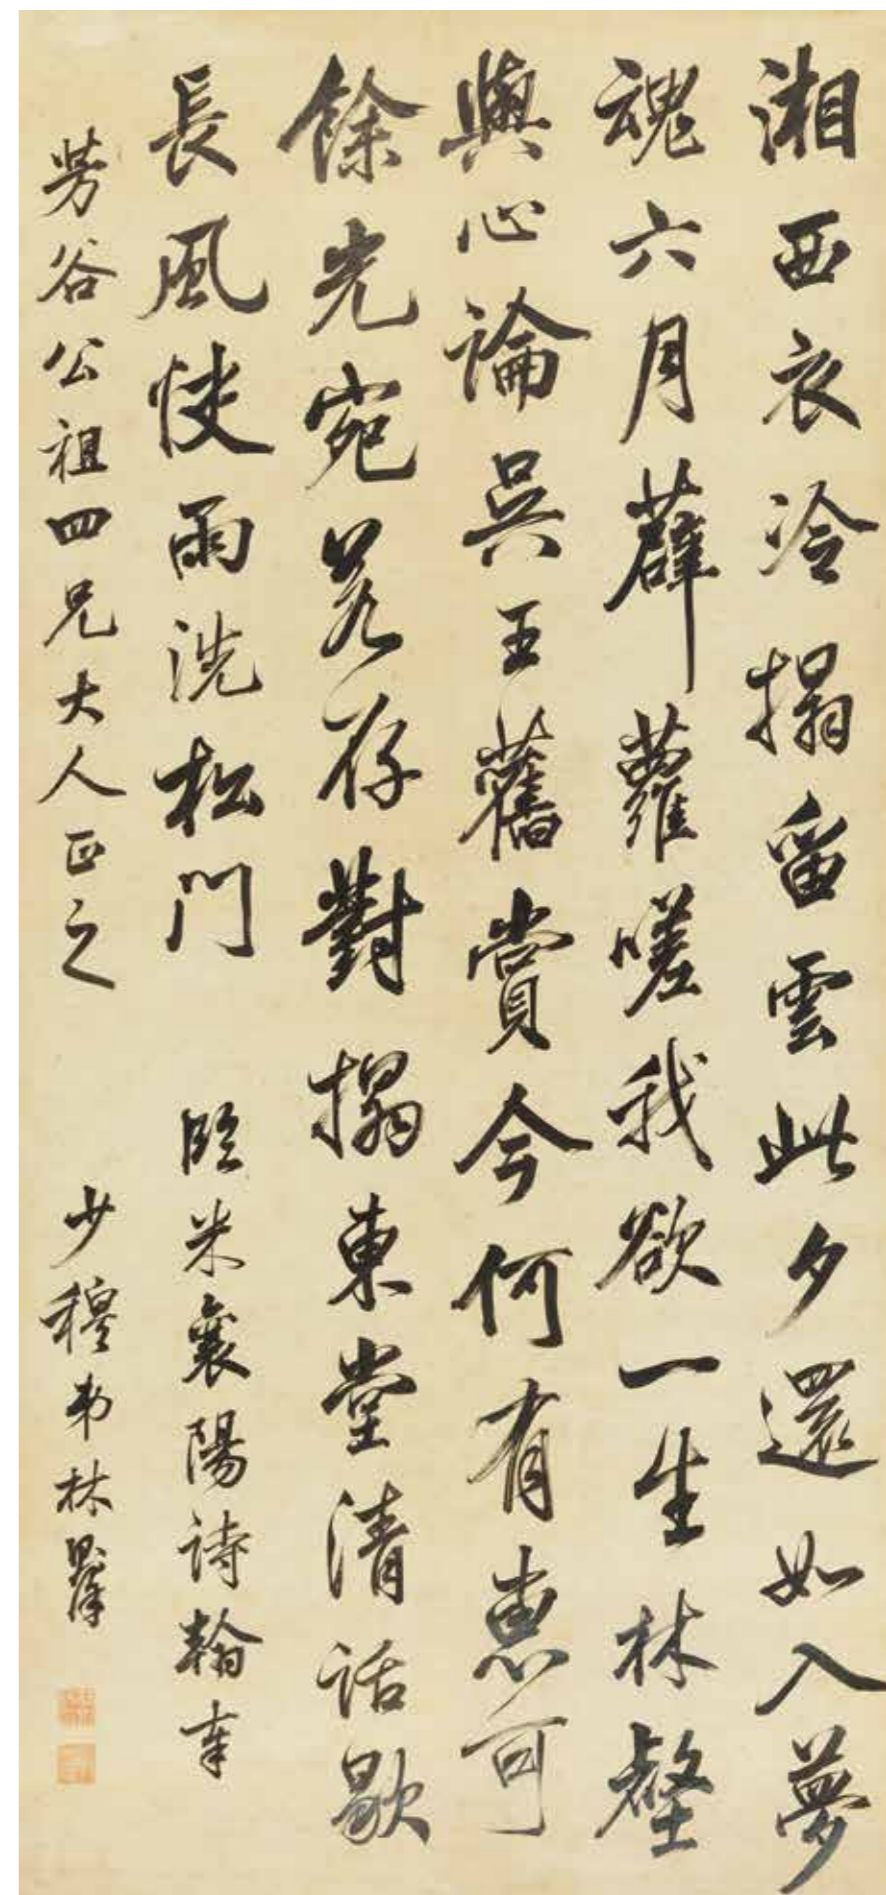 湘西衣冷搨留雲此夕還如入夢
魂六月薜蘿嗟我欲一生林壑
與心論吳王舊賞今何有惠可
餘光宛若存對搨東堂清話歇
長風快雨洗松門 臨米襄陽詩翰奉
芳谷公祖四兄大人正之 少穆弟林則徐